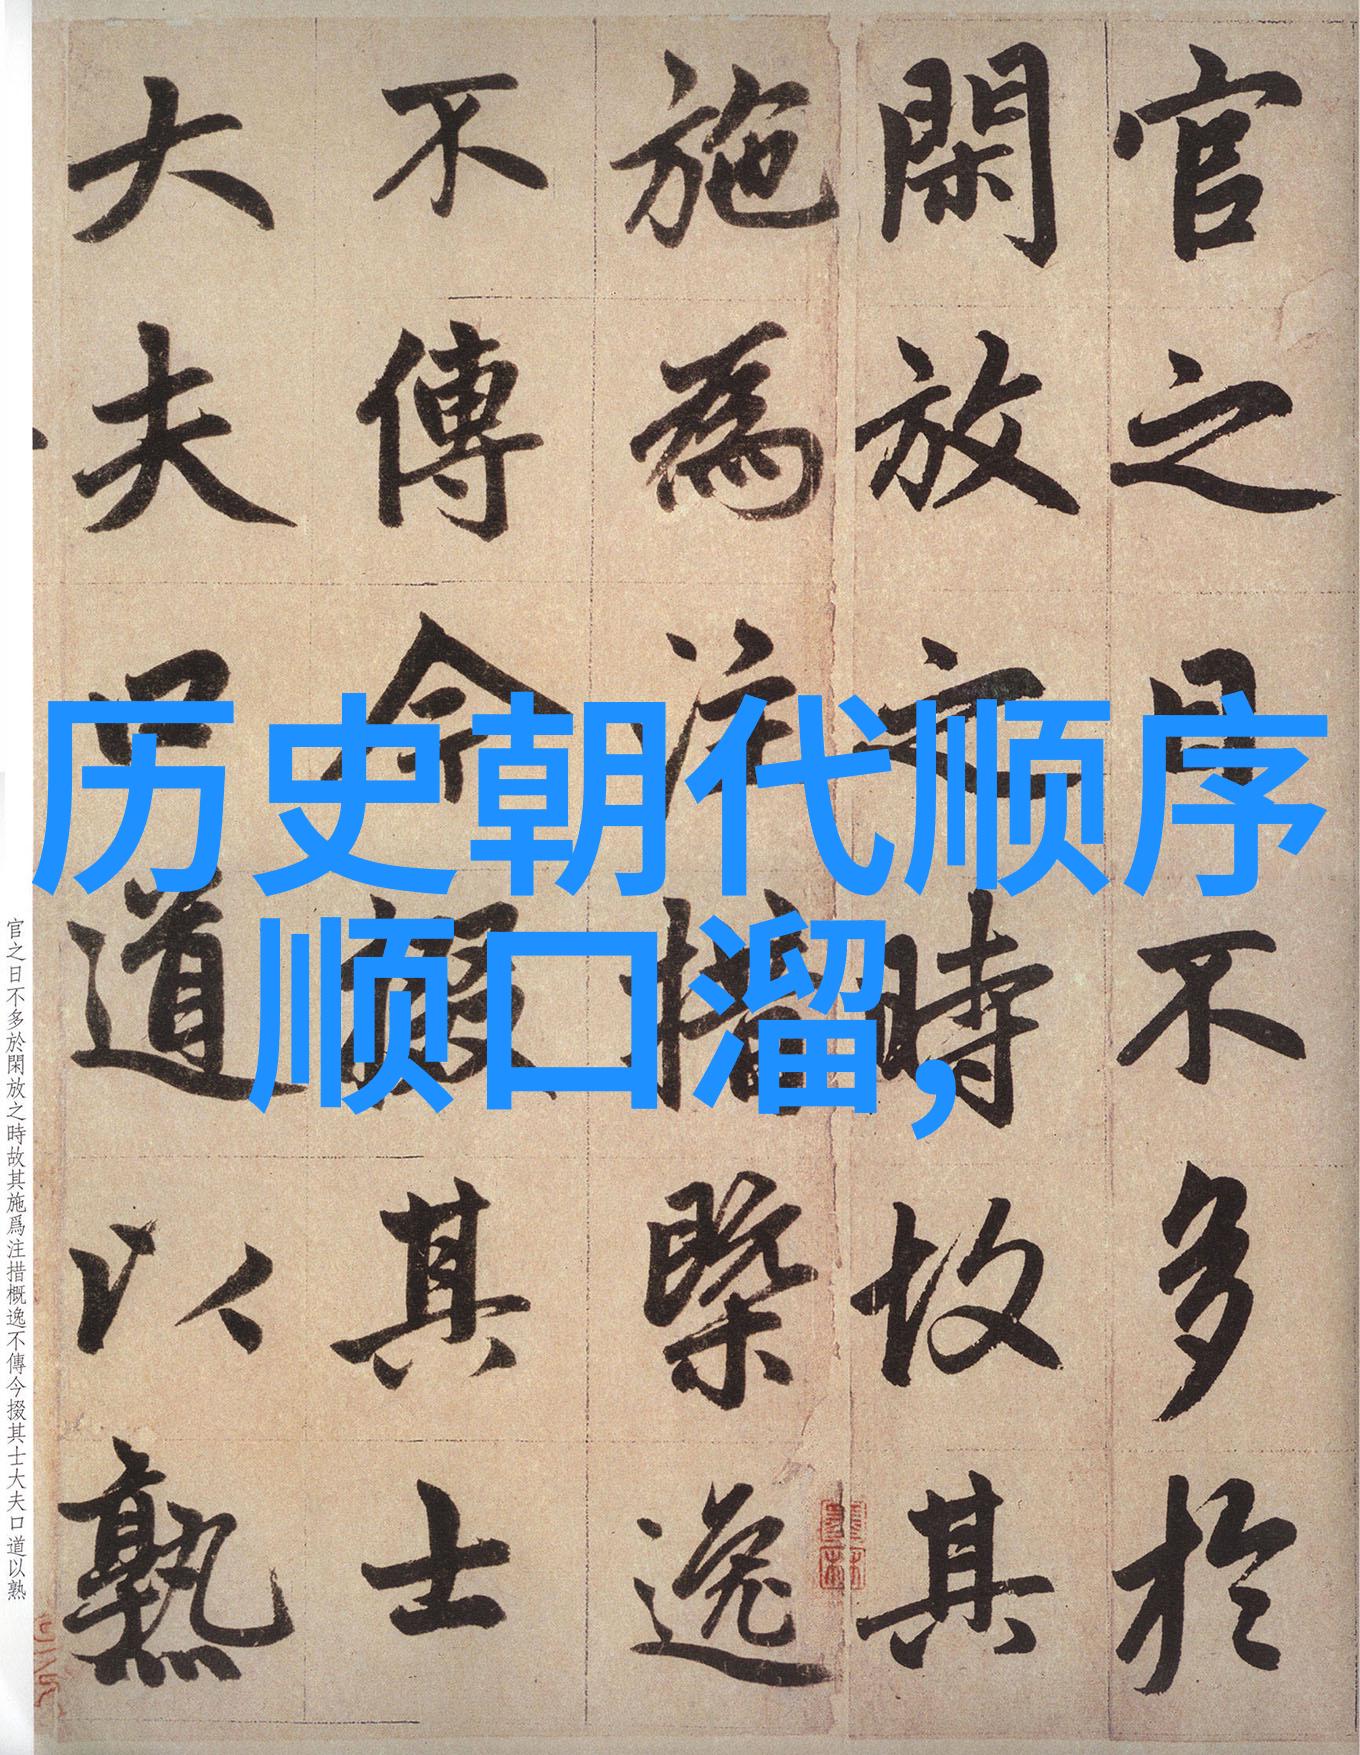 历史朝代顺序
顺口溜,
官之日不多於
閑放之時故其
施為注措槩逸
不傳今掇其士
大夫口道以熟
官之日不多於閑放之時故其施爲注措概逸不傳今掇其士大夫口道以熟